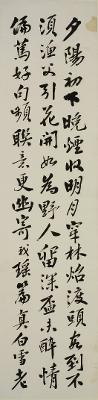 夕陽初下晚煙收明月穿林照渡頭客到不
須漁父引花開如為野人留深盃未醉情
偏篤好句頻聯意更幽寄我瑤篇真白雪老